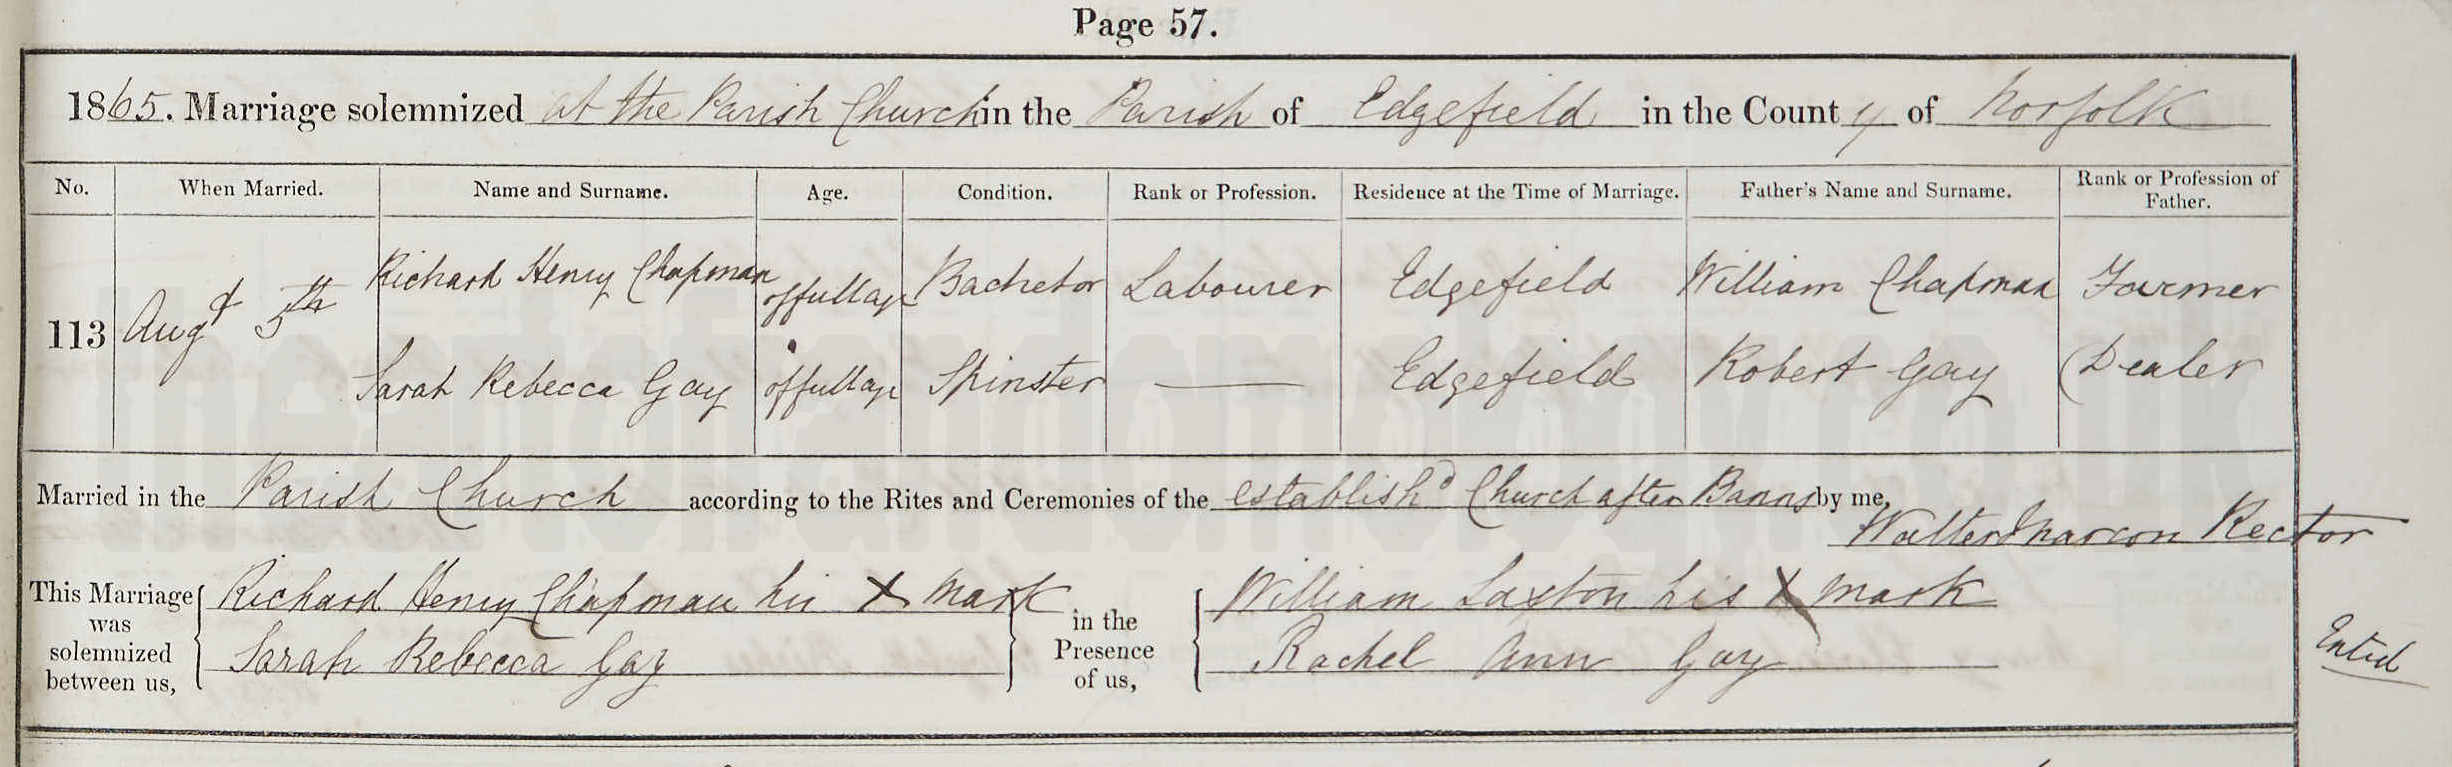 Page 57.
1865. Marriage solemnized at the Parish Church in the Parish of Edgefield in the County of Norfolk
No. When Married. Name and Surname. Age. Condition. Rank or Profession. Residence at the Time of Marriage. Father's Name and Surname. Rank or Profession of Father.
113 Augt 5th Richard Henry Chapman of full age Bachelor Labourer Edgefield William Chapman Farmer
Sarah Rebecca Gay of full age Spinster — Edgefield Robert Gay Dealer
Married in the Parish Church according to the Rites and Ceremonies of the Establishd Church after Banns by me,
Walter Marcon Rector
This Marriage was solemnized between us, Richard Henry Chapman his X Mark in the Presence of us, William Laxton his X Mark
Sarah Rebecca Gay Rachel Ann Gay
Entd